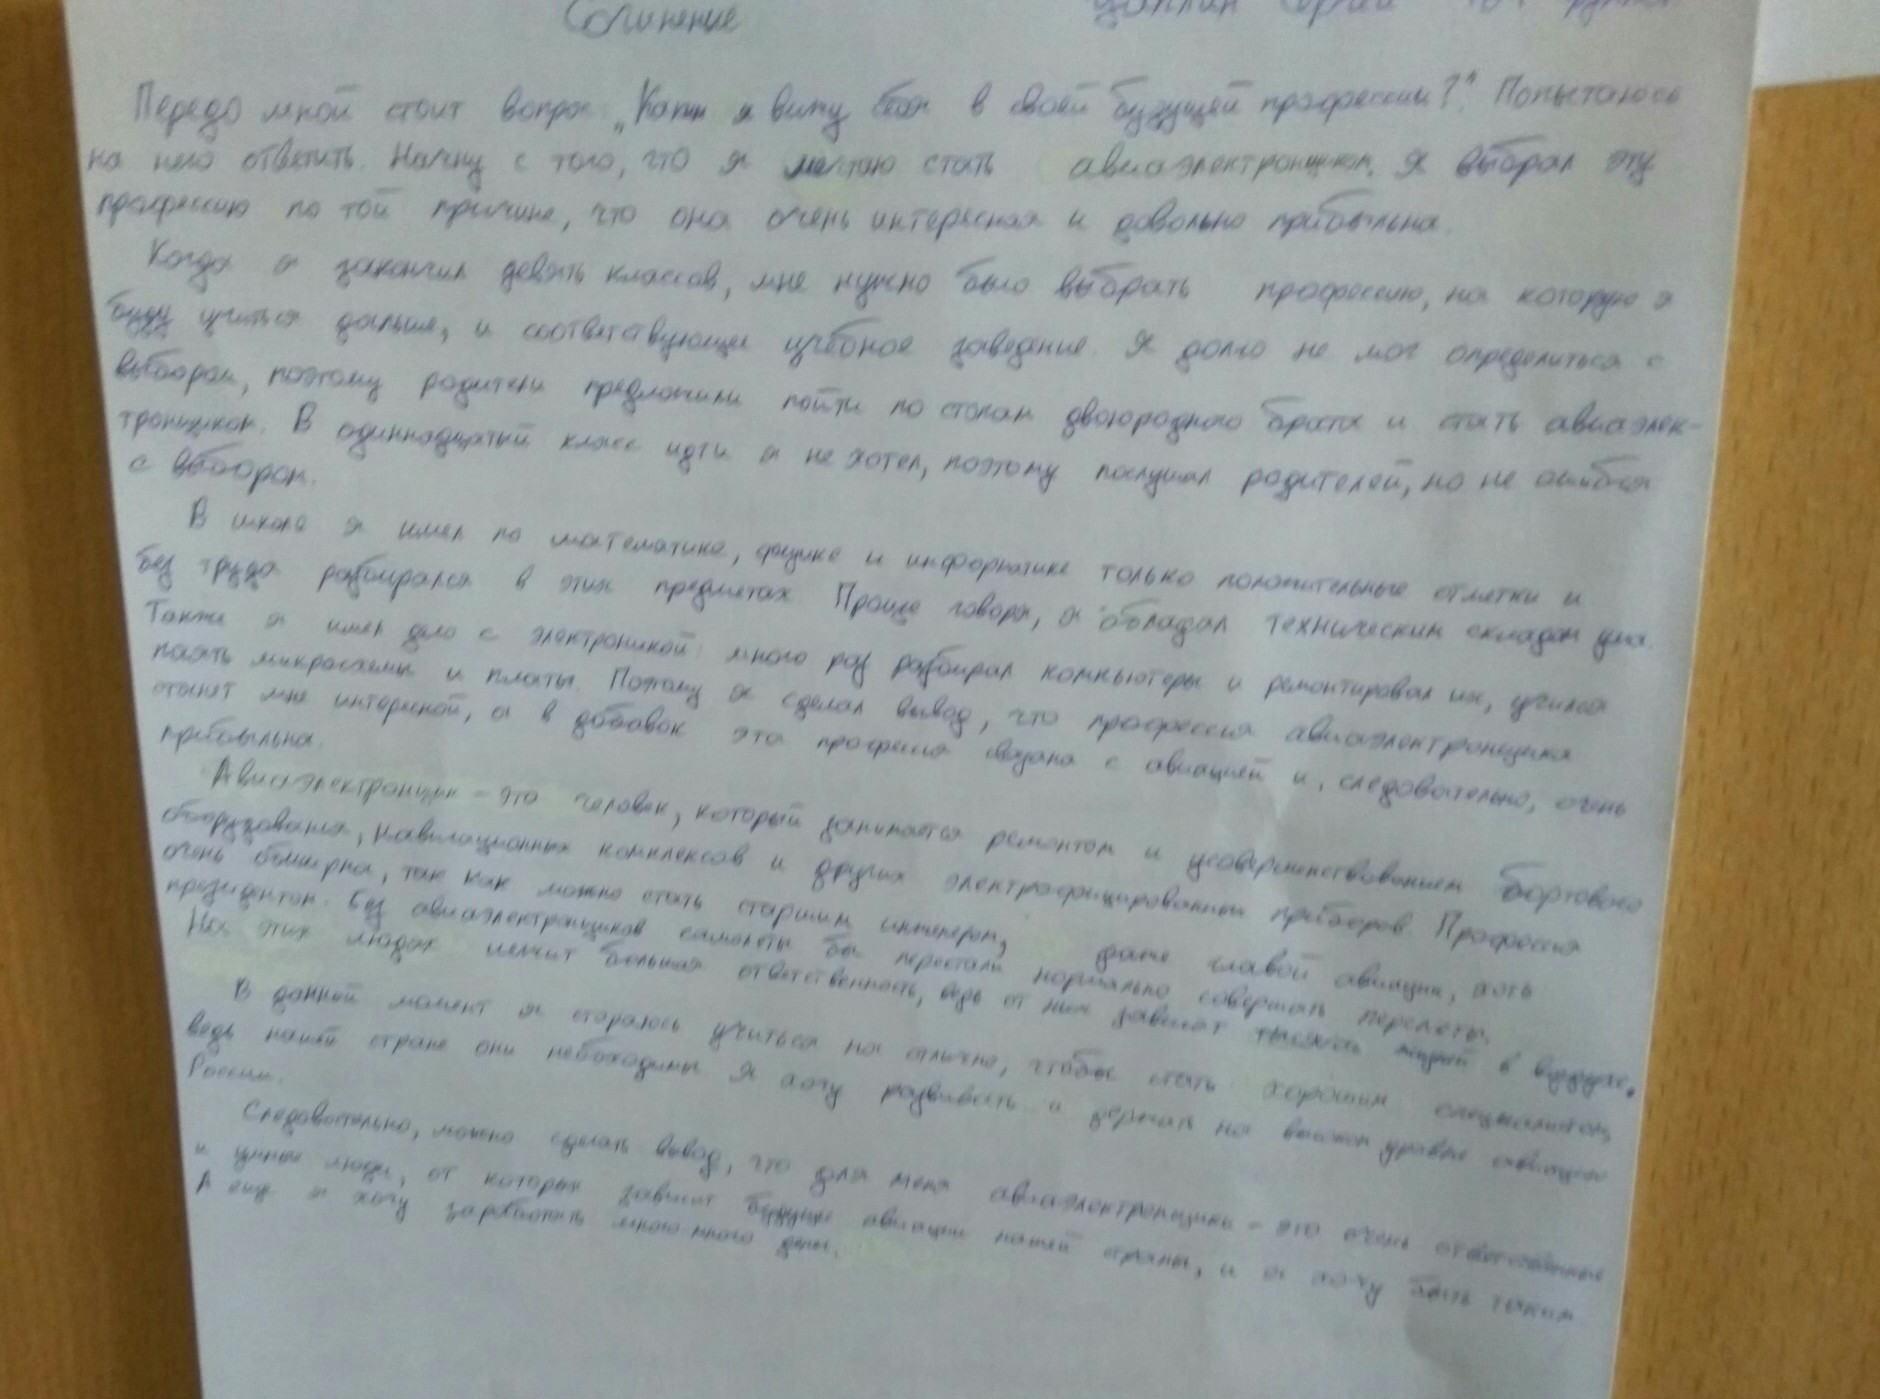 Сочинение
Передо мной стоит вопрос „Каким я вижу себя в своей будущей профессии?". Попытаюсь
на него ответить. Начну с того, что я мечтаю стать авиаэлектронщиком. Я выбрал эту
профессию по той причине, что она очень интересная и довольно прибыльна.
Когда я закончил девять классов, мне нужно было выбрать профессию, на которую я
буду учиться дальше, и соответствующее учебное заведение. Я долго не мог определиться с
выбором, поэтому родители предложили пойти по стопам двоюродного брата и стать авиаэлек-
тронщиком. В одиннадцатый класс идти я не хотел, поэтому послушал родителей, но не ошибся
с выбором.
В школе я имел по математике, физике и информатике только положительные отметки и
без труда разбирался в этих предметах. Проще говоря, я обладал техническим складом ума.
Также я имел дело с электроникой: много раз разбирал компьютеры и ремонтировал их, учился
паять микросхемы и платы. Поэтому я сделал вывод, что профессия авиаэлектронщика
станет мне интересной, а в добавок эта профессия связана с авиацией и, следовательно, очень
прибыльна.
Авиаэлектронщик – это человек, который занимается ремонтом и усовершенствованием бортового
оборудования, навигационных комплексов и других электрофицированных приборов. Профессия
очень обширна, так как можно стать старшим инженером, даже главой авиации, хоть
президентом. Без авиаэлектронщиков самолеты бы перестали нормально совершать перелеты.
На этих людях лежит большая ответственность, ведь от них зависят тысячи жизней в воздухе.
В данной момент я стараюсь учиться на отлично, чтобы стать хорошим специалистом,
ведь нашей стране они необходимы. Я хочу развивать и держать на высоком уровне авиацию
России.
Следовательно, можно сделать вывод, что для меня авиаэлектронщики – это очень ответственные
и умные люди, от которых зависит будущее авиации нашей страны, и я хочу быть таким.
А еще я хочу заработать много-много денег.